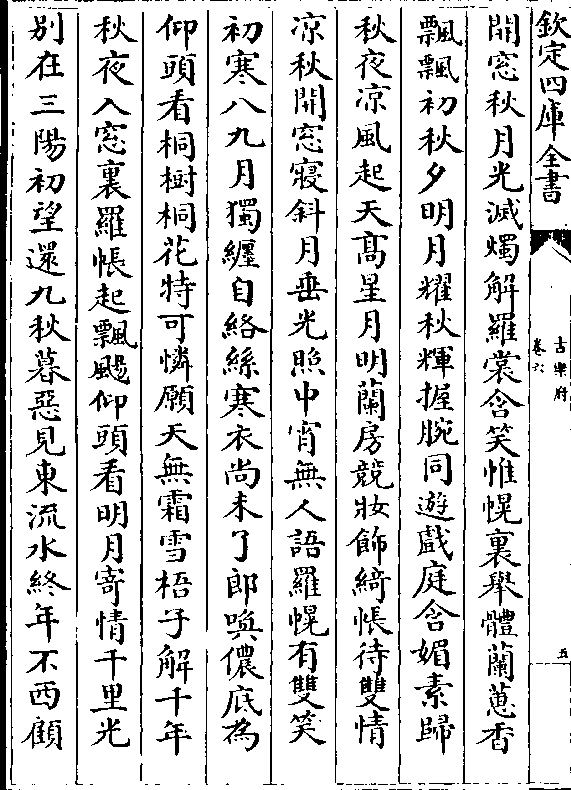 欽定四庫全書
古樂府
卷六
五
開窓秋月光滅燭解羅裳含笑惟幌裏舉體蘭蕙香
飄飄初秋夕明月耀秋輝握腕同遊戲庭含媚素歸
秋夜凉風起天髙星月明蘭房競妝飾綺帳待雙情
凉秋開窓寢斜月垂光照中宵無人語羅幌有雙笑
初寒八九月獨纒自絡絲寒衣尚未了郎喚儂底為
仰頭看桐樹桐花特可憐願天無霜雪梧子解千年
秋夜入窓裏羅帳起飄颺仰頭看明月寄情千里光
别在三陽初望還九秋暮惡見東流水終年不西顧